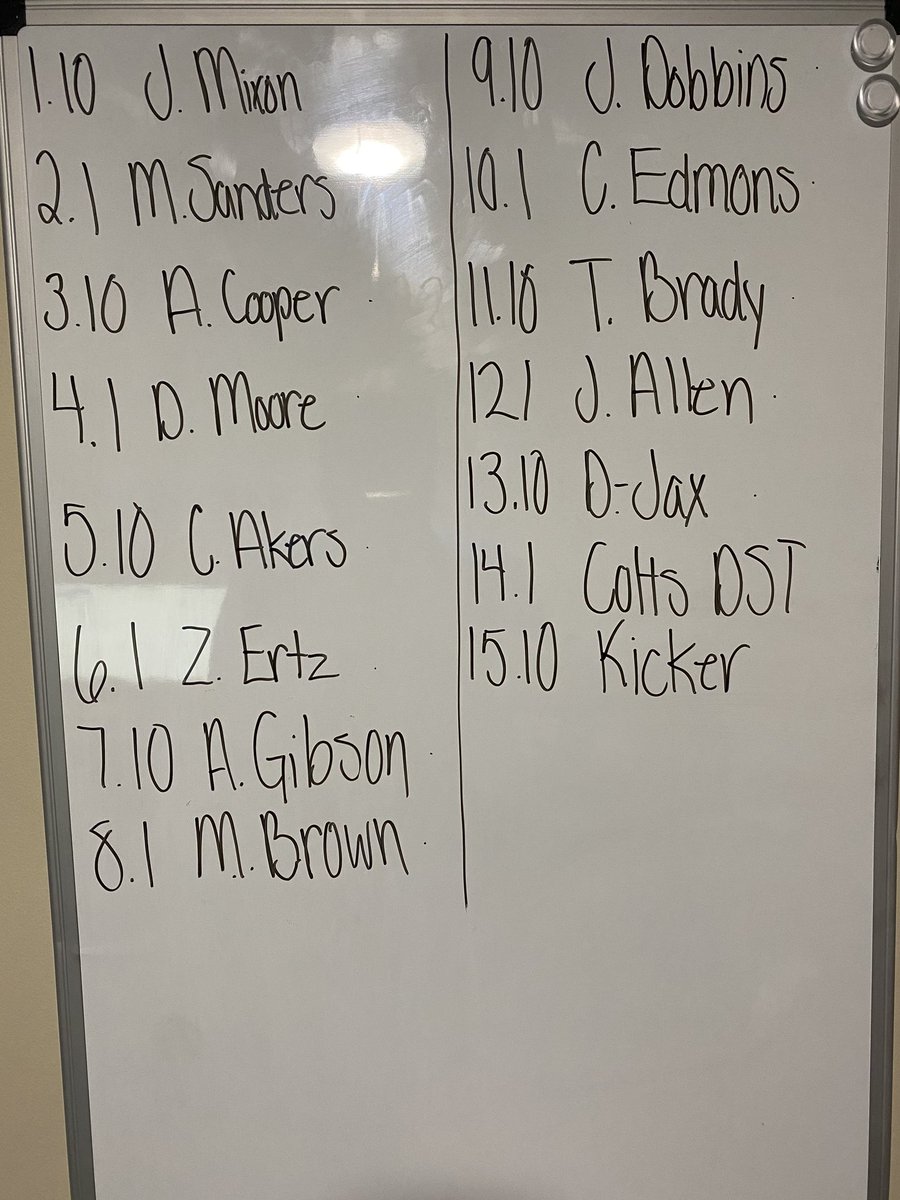 1.10 J. Mixon
2.1 M. Sanders
3.10 A. Cooper
4.1 D. Moore
5.10 C. Akers
6.1 Z. Ertz
7.10 A. Gibson
8.1 M. Brown
9.10 J. Dobbins
10.1 C. Edmons
11.10 T. Brady
121 J. Allen
13.10 D-Jax
14.1 Colts DST
15.10 Kicker